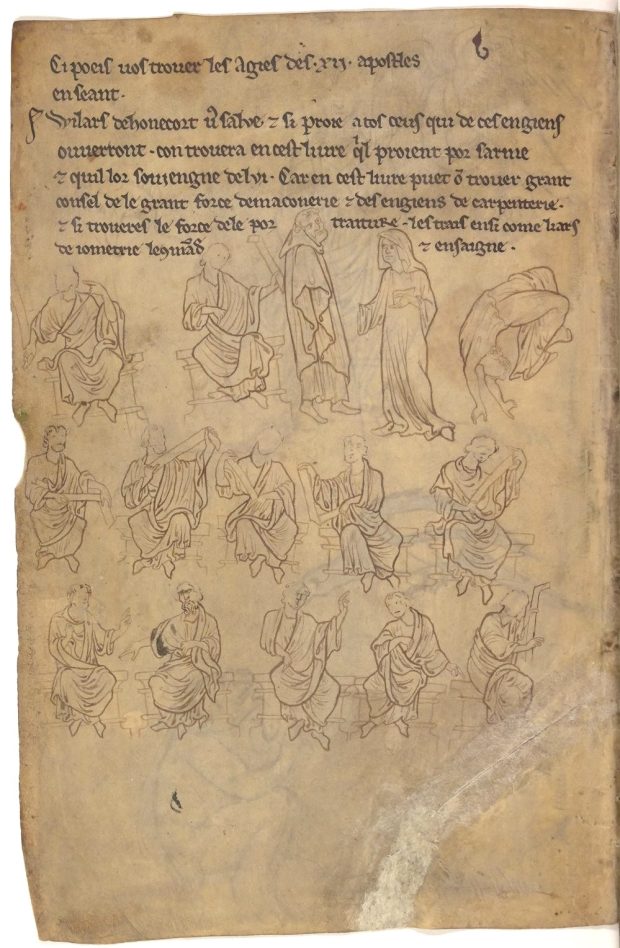 Ci poeis vos trover les Agies des .xij. apostles
en seant.
Wilars dehonecort v̄s salve ⁊ si proie a tos ceus qui de ces engiens
ouverront . con trovera en cest livre q̄l proient por sarme
⁊ quil lor soviengne de lvi . Car en cest livre puet ō trover grant
consel de le grant force de maconerie ⁊ des engiens de carpenterie .
⁊ si troveres le force de le por traiture . les trais ensi come li ars
de iometrie le ⁊ ensaigne .